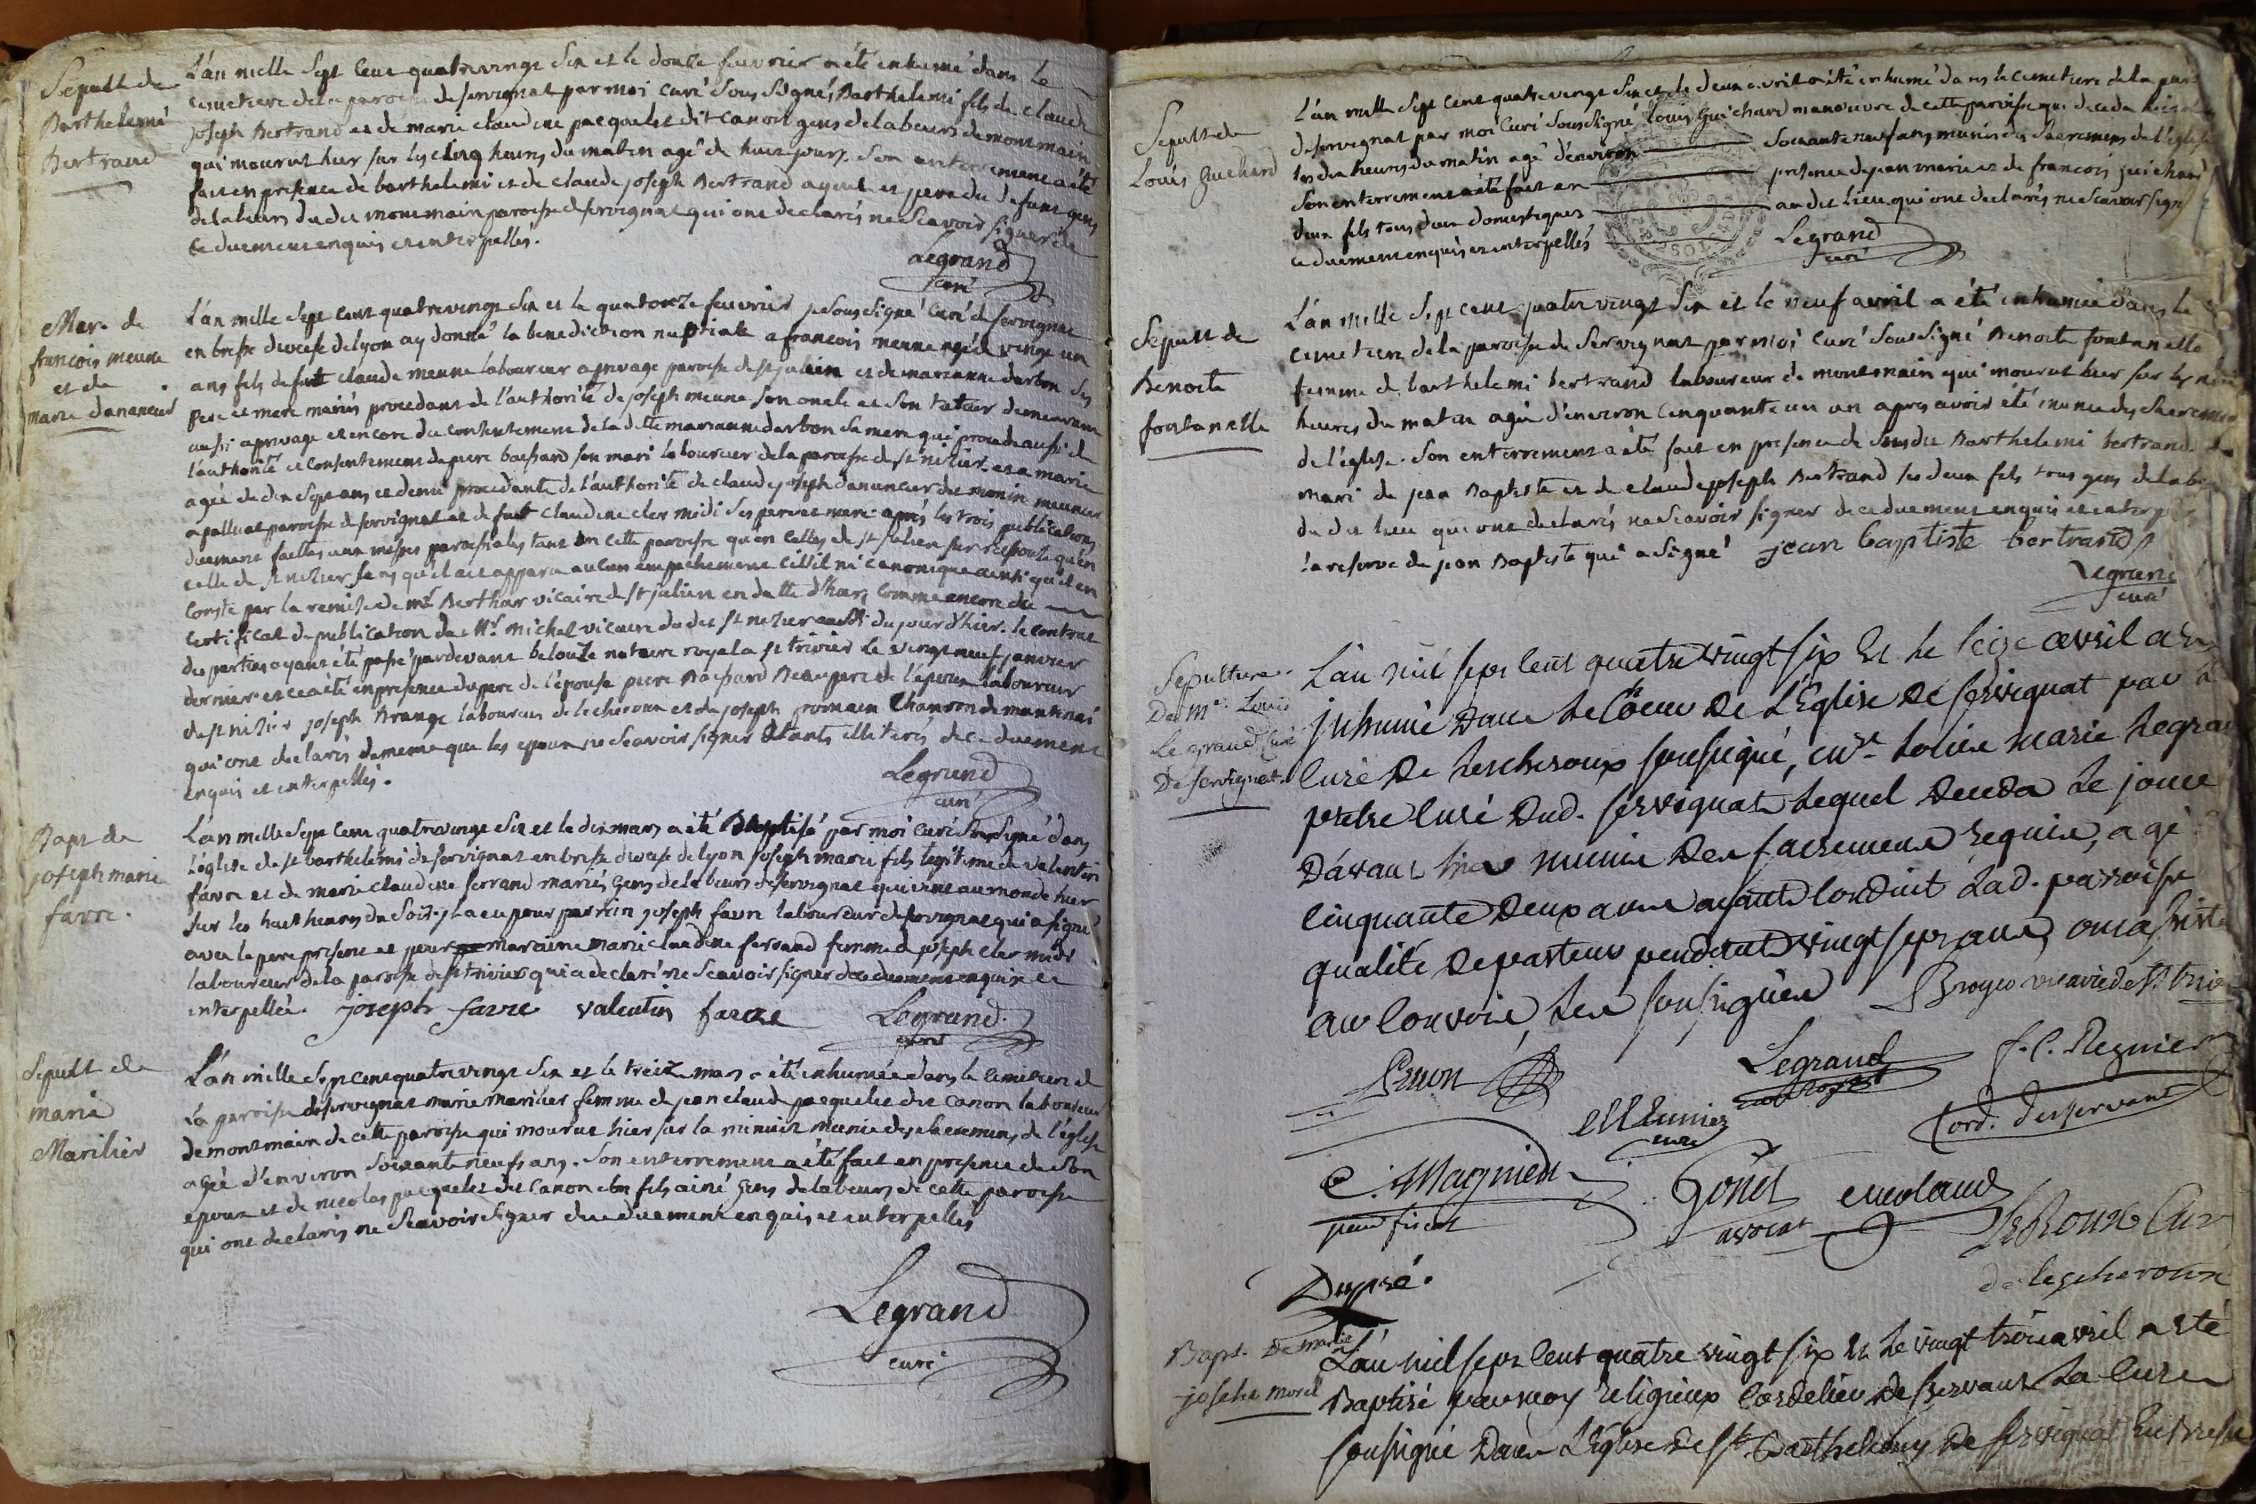 Sepult de
Barthelemi
Bertrand
L'an mille sept cent quatrevingt six et le douze fevrier a été inhumé dans le
cimetiere de la paroisse de servignat par moi curé sous signé Barthelemi fils de claude
joseph Bertrand et de marie claudine pacquelet dit canon gens de labeurs de montmain
qui mourut hier sur les cinq heures du matin agé de huit jours. Son enterrement a été
fait en presence de barthelemi et de claude joseph Bertrand ayeul et pere du defunt gens
de labeurs du dit montmain paroisse de servignat qui ont declarés ne scavoir signer de
ce duement enquis et interpellés.
Legrand
curé
Mar. de
francois meune
et de
marie danancier
L'an mille sept cent quatrevingt six et le quatorze fevrier je sous signé curé de servignat
en bresse diocese de lyon ay donné la benediction nuptiale a francois meune agé de vingt un
ans fils de fut claude meune laboureur a privage paroisse de st julien et de marianne darbon ses
pere et mere mariés procedant de l'authorité de joseph meune son oncle et son tuteur demeurant
aussi a privage et encore du consentement de la ditte marianne darbon sa mere qui procede aussi de
l'authorité et consentement de piere bachard son mari laboureur de la paroisse de st nizier. et a marie
agée de dix sept ans et demi procedante de l'authorité de claude joseph danancier dit monin meunier
a palluat paroisse de servignat et de fut claudine cler midi ses pere et mere. après les trois publications
duement faittes aux messes paroissiales tant en cette paroisse qu'en celles de st julien sur reissouze qu'en
celle de st nizier sans qu'il ait apparu aucun empechement civil ni canonique ainsi qu'il en
conste par la remise de mr Berthar vicaire de st julien en datte d'hier comme encore du
certificat de publication de Mr. michel vicaire du dit st nizier aussi du jour d'hier. le contrat
des parties ayant été passé pardevant belouze notaire royal a st trivier le vingt neuf janvier
dernier et ce a été en presence du pere de l'epouse piere Bachard Beaupere de l'epoux laboureur
de st nizier joseph Brange laboureur de lescheroux et de joseph romain chanson de mantenai
qui ont declarés de meme que les epoux ne scavoir signer étants illiterés de ce duement
enquis et interpellés.
Legrand
curé
Bapt de
joseph marie
favre.
L'an mille sept cent quatrevingt six et le dix mars a été Baptisé par moi curé sous signé dans
l'eglise de st barthelemi de servignat en bresse diocese de lyon joseph marie fils legitime de valentin
favre et de marie claudine ferrand mariés gens de labeurs de servignat qui vint au monde hier
sur les huit heures du soir. il a eu pour parrin joseph favre laboureur de servignat qui a signé
avec le pere present et pour maraine marie claudine ferrand femme de joseph cler midi
laboureur de la paroisse de st trivier qui a declaré ne scavoir signer de ce duement enquise et
interpellée. joseph favre valentin favre Legrand
curé
Sepult de
marie
Marilier
L'an mille sept cent quatrevingt six et le treize mars a été inhumée dans le cimetiere de
la paroisse de servignat marie marilier femme de jean claude pacquelet dit canon laboureur
de montmain de cette paroisse qui mourut hier sur la minuit munie des sacremens de l'eglise
agée d'environ soixante neuf ans. Son enterrement a été fait en presence de son
epoux et de nicolas pacquelet dit canon son fils ainé gens de labeurs de cette paroisse
qui ont declarés ne scavoir signer de ce duement enquis et interpellés
Legrand
curé
Sepult de
Louis guichard
L'an mille sept cent quatrevingt six et le deux avril a été inhumé dans le cimetiere de la par
de servignat par moi curé sous signé Louis guichard manoeuvre de cette paroisse qui deceda hier
les dix heures du matin agé d'environ soixante neuf ans munis des sacremens de l'eglise
Son enterrement a été fait en presence de jean marie et de francois guichard
deux fils tous deux domestiques au dit lieu qui ont declarés ne scavoir sign
ce duement enquis et interpellés
Legrand
curé
Sepult de
Benoite
fontanelle
L'an mille sept cent quatre vingt six et le neuf avril a été inhumée dans le
cimetiere de la paroisse de servignat par moi curé sous signé Benoite fontanelle
femme de barthelemi bertrand laboureur de montmain qui mourut hier sur les
heures du matin agée d'environ cinquante un an apres avoir été munie des sacremens
de l'eglise. Son enterrement a été fait en presence de sus dit Barthelemi bertrand
mari de jean Baptiste et de claude joseph Bertrand ses deux fils tous gens de lab
du dit lieu qui ont declarés ne scavoir signer de ce duement enquis et interpe
la reserve de jean Baptiste qui a signé jean baptiste bertrand
Legrand
curé
Sepulture
De Me. Louis
Le grand curé
De servignat
L'an mil sept cent quatre vingt six et le seize avril a
inhumé dans le Coeur De L'Eglise De servignat par
curé De Lescheroux soussigné, Louis marie Legra
pretre curé Dud. servignat Lequel Deceda Le jour
D'avant hier munie Des sacremens requis, agé
cinquante Deux ans ayant Conduit Lad. parroisse
qualité De pasteur pendant vingt sept ans, ont assisté
au Convoi Les soussignés Broyer vicaire de st triv
Legrand
f. C. Regnier
cord. desservant
curé
C. Magnien
Gonet
avocat
LeRoux Cur
de lescheroux
Dupré.
Bapt. De marie
josette morel
L'an mil sept cent quatre vingt six et Le vingt trois avril a été
Baptisé par moy religieux cordelier desservant La cure
soussigné Dans L'Eglise De st Barthelemy De servignat En Bresse